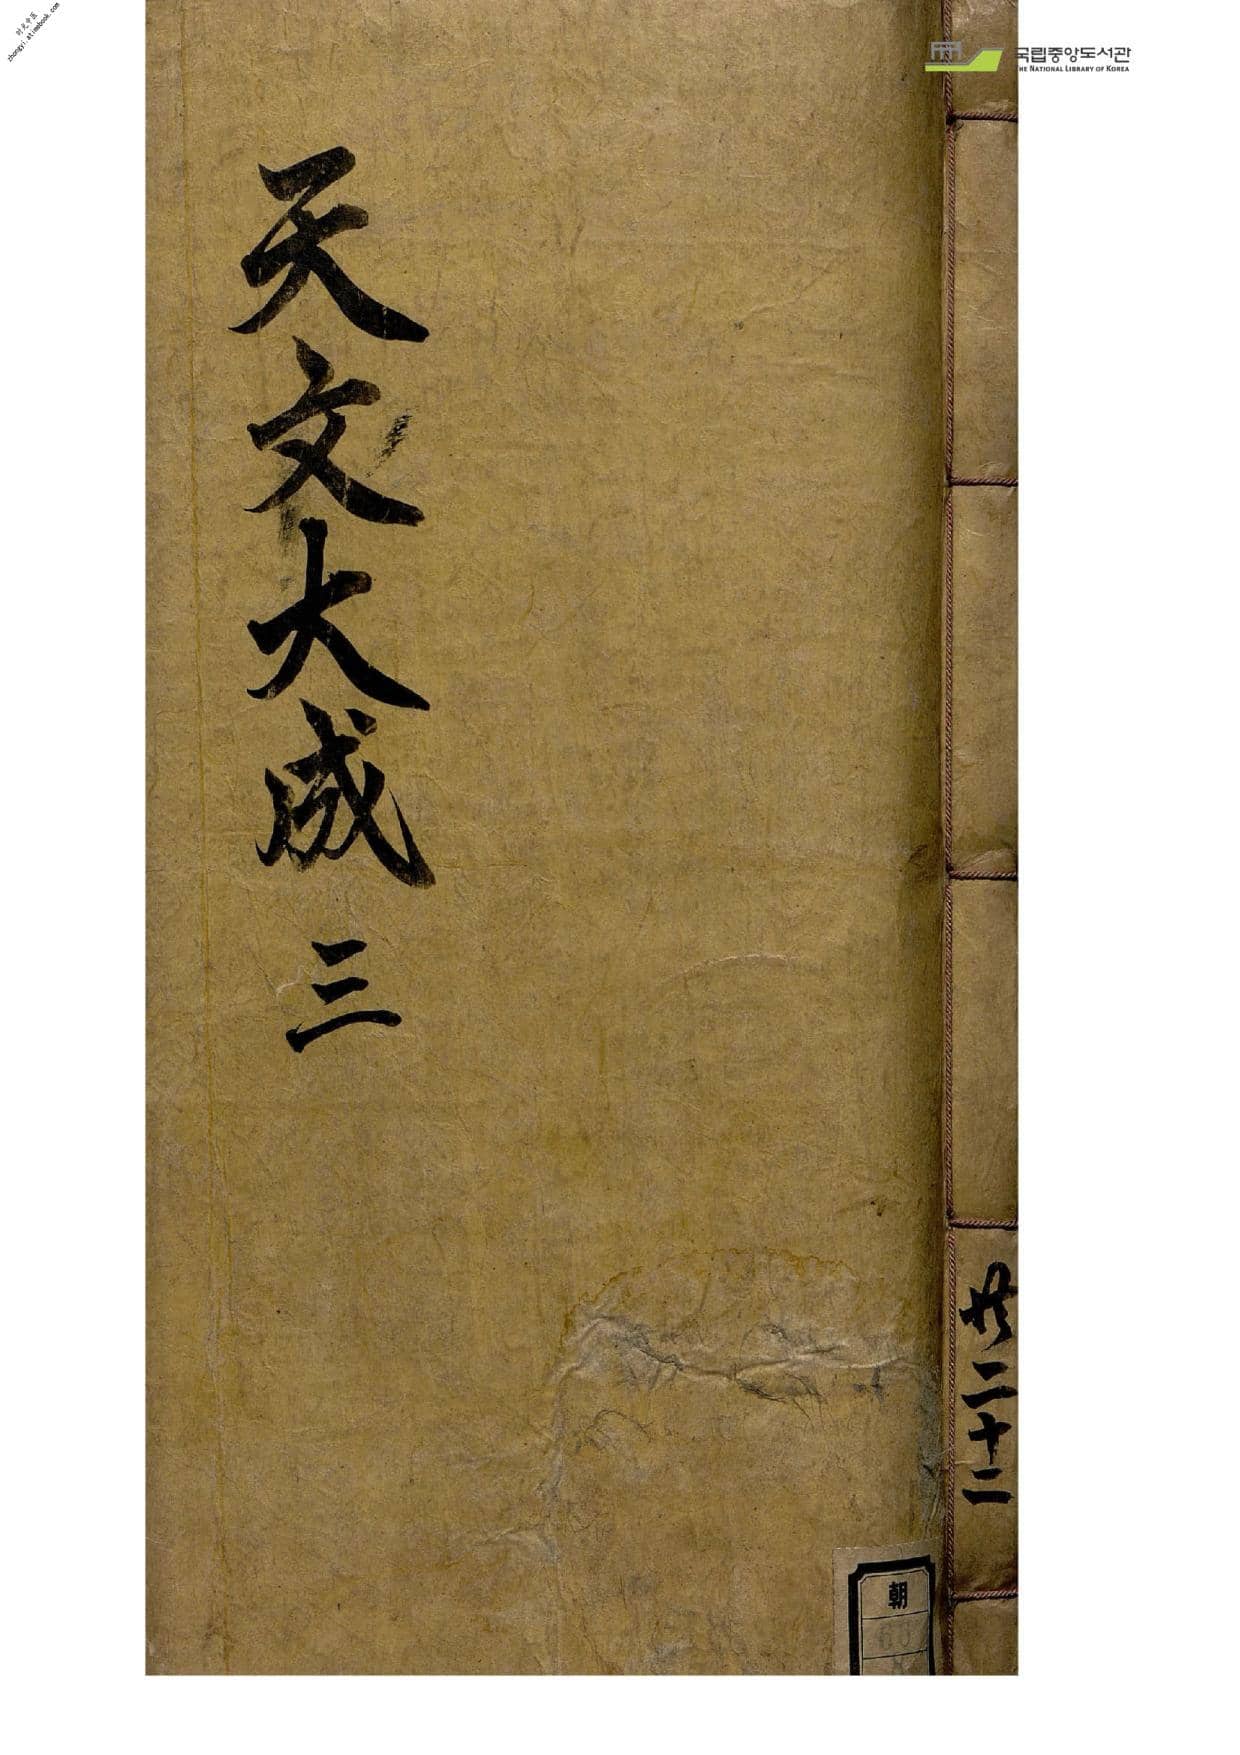 时光中医
zhongyi.atimebook.com
국립중앙도서관
THE NATIONAL LIBRARY OF KOREA
天文大成 三
共二十二
朝